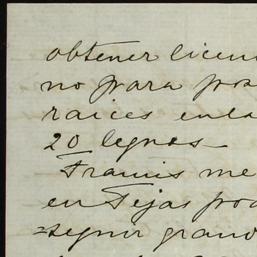 obtener licen
no para pos
raices enla
20 legnas
Framis me
en Tejas pod
=segnir grand